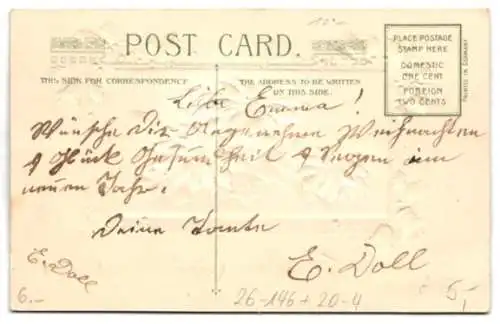 10.-
POST CARD.
THIS SIDE FOR CORRESPONDENCE
THE ADDRESS TO BE WRITTEN
ON THIS SIDE.
PLACE POSTAGE
STAMP HERE
DOMESTIC
ONE CENT
FOREIGN
TWO CENTS
PRINTED IN GERMANY
Liebe Emma!
Wünsche Dir Angenehme Weihnachten
& Glück Gesundheit & Segen im
neuen Jahr.
Deine Tante
E. Doll
E. Doll
6.-
26-146+20-4
5,-